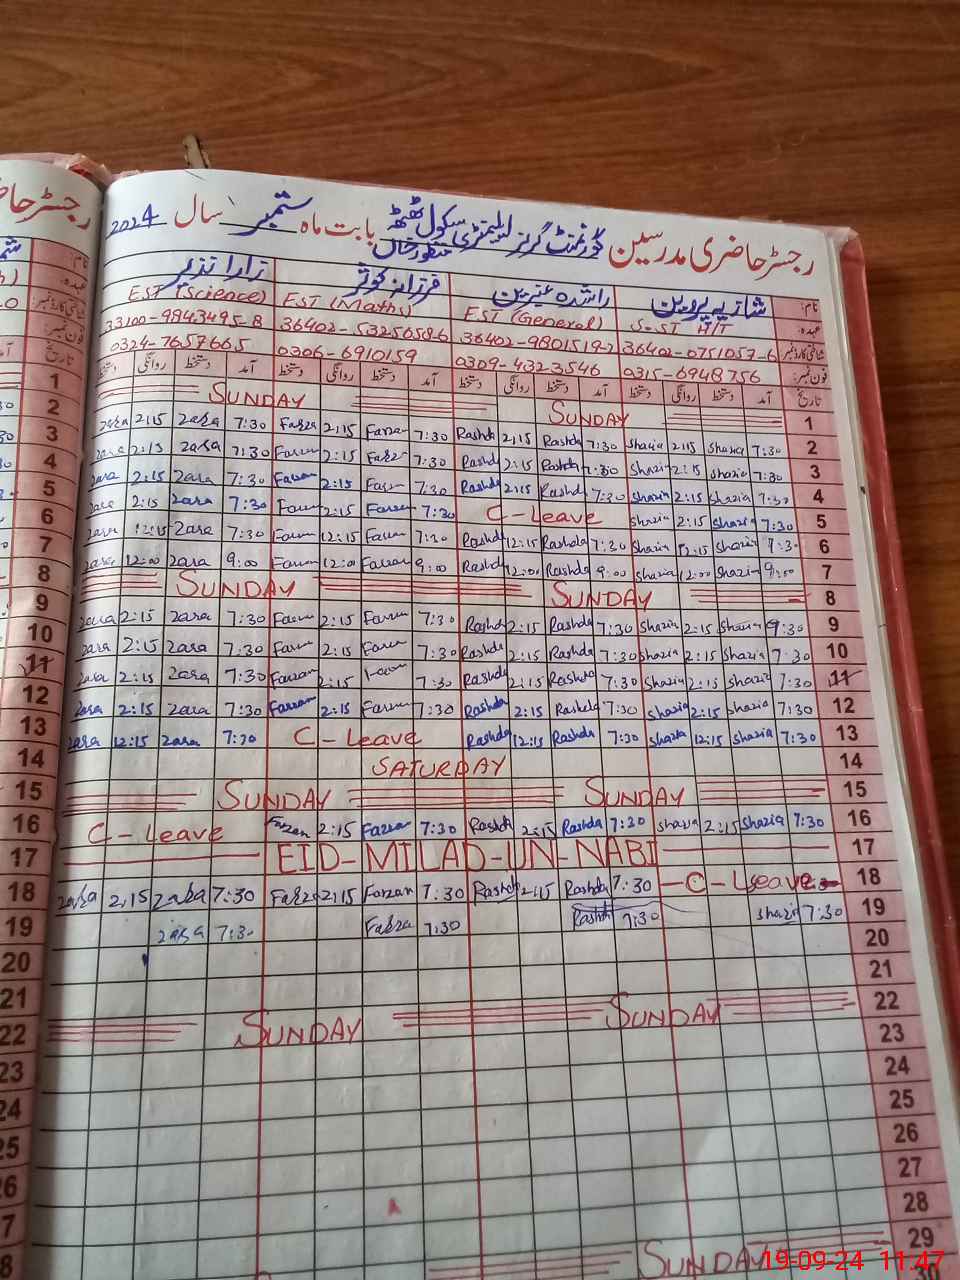 رجسٹر حاضری مدرسین گورنمنٹ گرلز ایلیمنٹری سکول ٹھٹھہ منظور خاں بابت ماہ ستمبر سال 2024
نام: شازیہ پروین راشدہ عنبرین فرزانہ کوثر زارا نذیر
عہدہ: S-ST IT/T EST (General) EST (Maths) EST (Science)
شناختی کارڈ نمبر: 36402-0751057-6 36402-9801519-2 36402-5325658-6 33100-9943495-8
فون نمبر: 0315-6948756 0309-4323546 0306-6910159 0324-7657665
تاریخ آمد دستخط روانگی دستخط آمد دستخط روانگی دستخط آمد دستخط روانگی دستخط آمد دستخط روانگی دستخط
1 SUNDAY SUNDAY
2 7:30 Shazia 2:15 Shazia 7:30 Rashda 2:15 Rashda 7:30 Farzan 2:15 Farza 7:30 zara 2:15 zara
3 7:30 Shazia 2:15 Shazia 7:30 Rashda 2:15 Rashd 7:30 Farz 2:15 Farzan 7:30 zara 2:15 zara
4 7:30 Shazia 2:15 Shazia 7:30 Rashda 2:15 Rashda 7:30 Farzan 2:15 Farzan 7:30 zara 2:15 zara
5 7:30 Shazia 2:15 Shazia C-Leave 7:30 Farzan 2:15 Farzan 7:30 zara 2:15 zara
6 7:30 Shazia 12:15 Shazia 7:30 Rashda 12:15 Rashda 7:30 Farzan 12:15 Farzan 7:30 zara 12:15 zara
7 9:00 Shazia 12:00 Shazia 9:00 Rashda 12:00 Rashda 9:00 Farzan 12:00 Farzan 9:00 zara 12:00 zara
8 SUNDAY SUNDAY
9 9:30 Shazia 2:15 Shazia 7:30 Rashda 2:15 Rashda 7:30 Farzan 2:15 Farzan 7:30 zara 2:15 zara
10 7:30 Shazia 2:15 Shazia 7:30 Rashda 2:15 Rashda 7:30 Farzan 2:15 Farzan 7:30 zara 2:15 zara
11 7:30 Shazia 2:15 Shazia 7:30 Rashda 2:15 Rashda 7:30 2:15 Farzan 7:30 zara 2:15 zara
12 7:30 Shazia 2:15 Shazia 7:30 Rashda 2:15 Rashda 7:30 Farzan 2:15 Farzan 7:30 zara 2:15 zara
13 7:30 Shazia 12:15 Shazia 7:30 Rashda 12:15 Rashda C-Leave 7:30 zara 12:15 zara
14 SATURDAY
15 SUNDAY SUNDAY
16 7:30 Shazia 2:15 Shazia 7:30 Rashda 2:15 Rashda 7:30 Farzan 2:15 Farzan C-Leave
17 EID-MILAD-UN-NABI
18 C-Leave 7:30 Rashda 2:15 Rashda 7:30 Farzan 2:15 Farza 7:30 zara 2:15 zara
19 7:30 Shazia 7:30 Rashda 7:30 Farza 7:30 zara
20
21
22 SUNDAY SUNDAY
23
24
25
26
27
28
29 SUNDAY
19-09-24 11:47